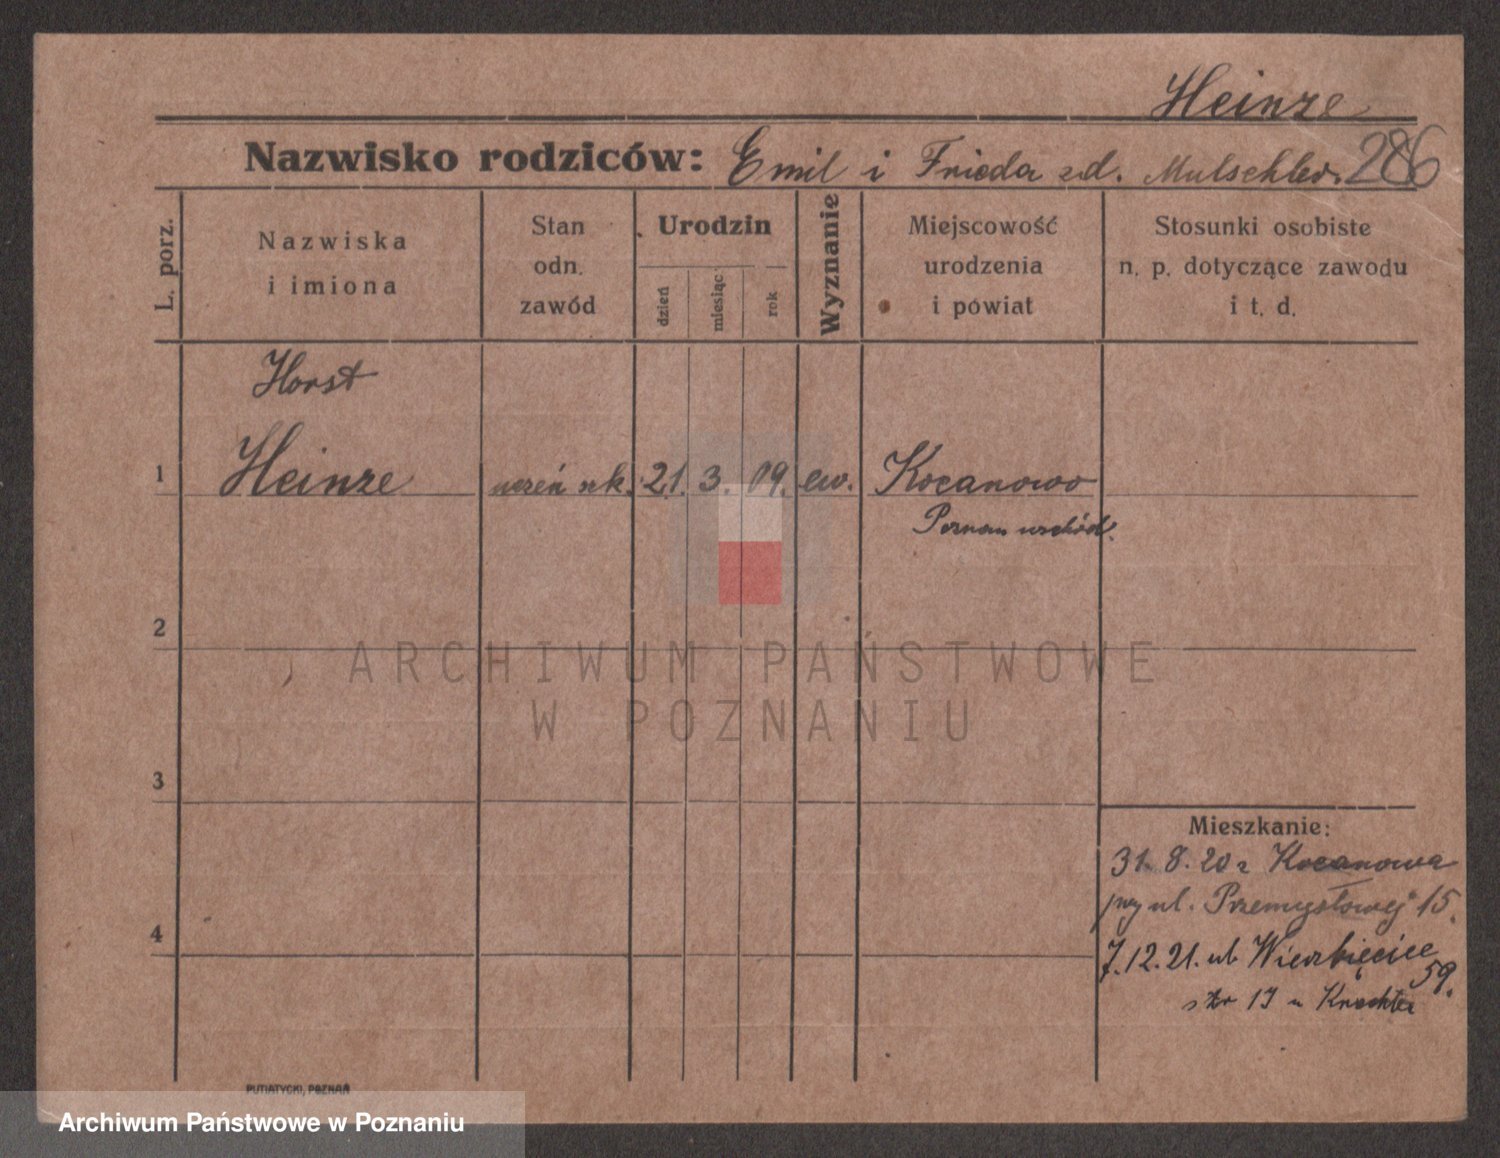 Heinze
Nazwisko rodziców: Emil i Frieda zd. Mutschler. 286
L. porz.
Nazwiska
i imiona
Stan
odn.
zawód
Urodzin
dzień
miesiąc
rok
Wyznanie
Miejscowość
urodzenia
i powiat
Stosunki osobiste
n. p. dotyczące zawodu
i t. d.
Horst
1 Heinze uczeń szk. 21. 3. 09. ew. Kocanowo
Poznań wschód.
2
3
4
Mieszkanie:
31. 8. 20 z Kocanowa
przy ul. Przemysłowej 15.
7.12.21. ul. Wierzbięcice
59.
str 17 u
PUTIATYCKI, POZNAŃ
ARCHIWUM PAŃSTWOWE
W POZNANIU
Archiwum Państwowe w Poznaniu